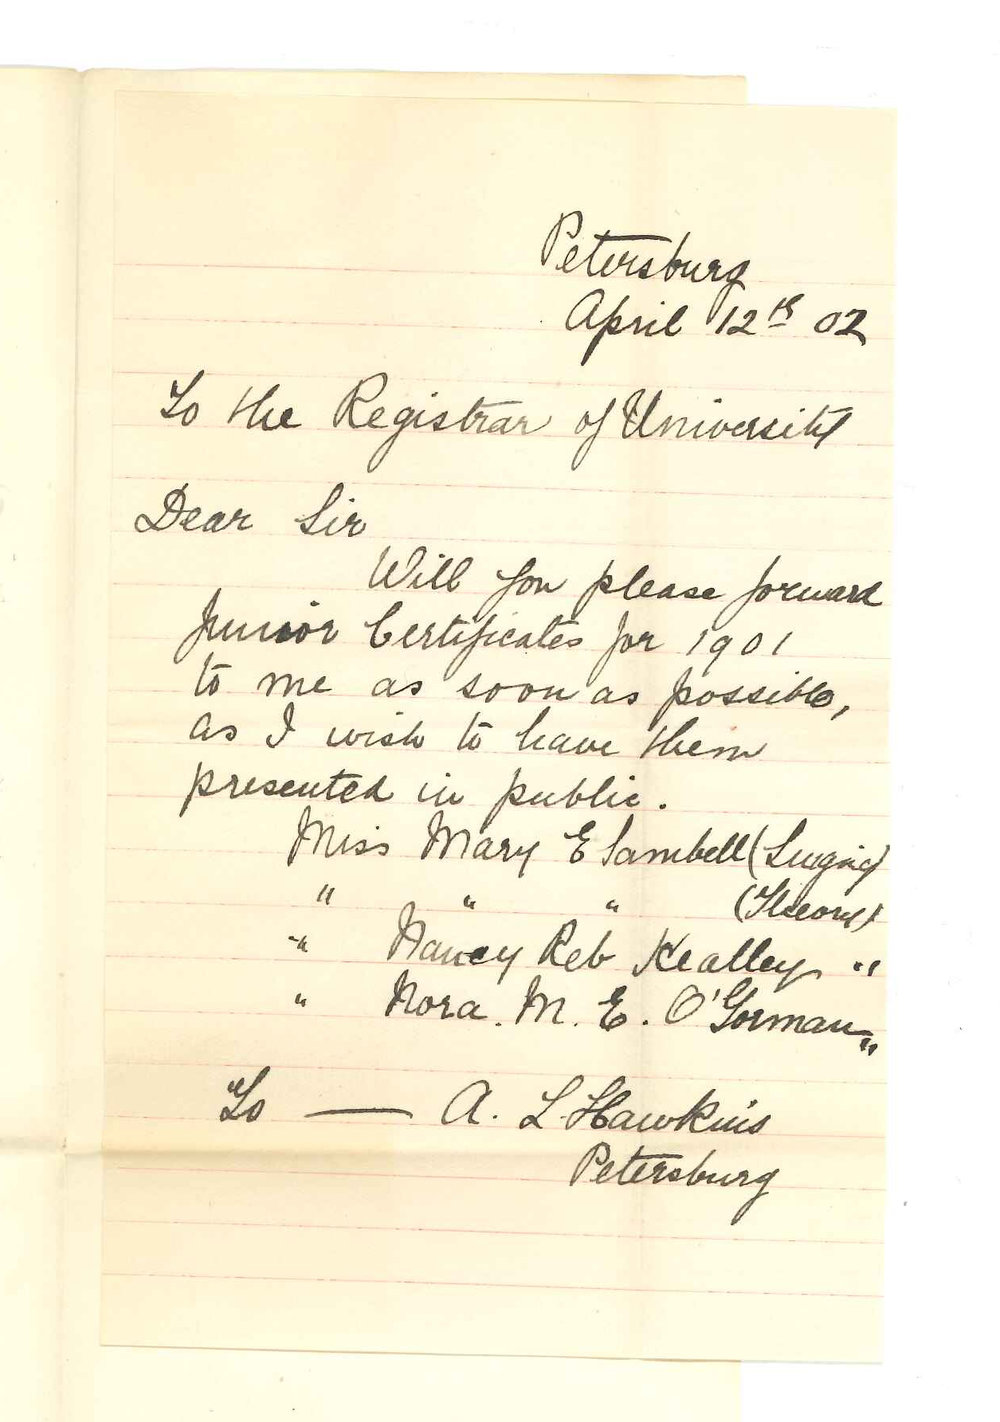 Petersburg
April 12th 02
To the Registrar of University
Dear Sir
Will you please forward
Junior Certificates for 1901
to me as soon as possible,
as I wish to have them
presented in public.
Miss Mary E Sambell (Singing)
" " " (Theory)
" Nancy Reb Kealley "
" Nora. M. E. O'Gorman "
To — A. L. Hawkins
Petersburg